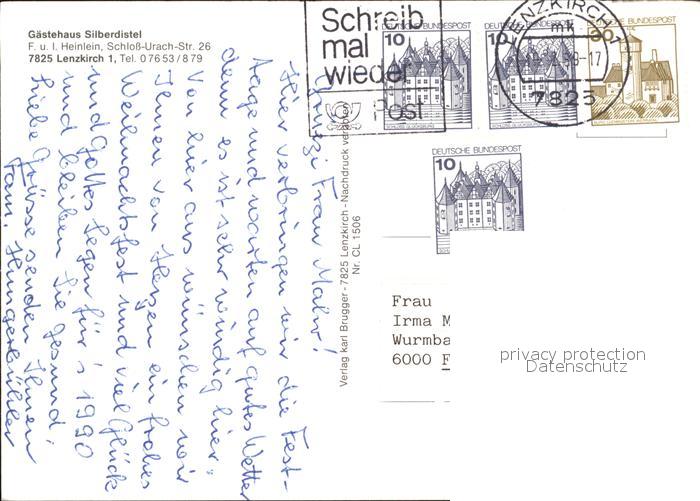 Gästehaus Silberdistel
F. u. I. Heinlein, Schloß-Urach-Str. 26
7825 Lenzkirch 1, Tel. 0 76 53 / 8 79
Frau Mahr!
Hier verbringen wir die Fest-
tage und warten auf gutes Wetter
denn es ist sehr windig hier.
Von hier aus wünschen wir
Ihnen von Herzen ein frohes
Weihnachtsfest und viel Glück
und Gottes Segen für's 1990
und bleiben Sie gesund
Liebe Grüsse senden Ihnen
Fam.
Verlag karl Brugger - 7825 Lenzkirch - Nachdruck verboten
Nr. CL 1506
Schreib
mal
wieder
Post
DEUTSCHE BUNDESPOST
10
SCHLOSS GLÜCKSBURG
10
LENZKIRCH 1
mk
-17
7825
DEUTSCHE BUNDESPOST
80
DEUTSCHE BUNDESPOST
10
Frau
Irma M
Wurmba
6000 F
privacy protection
Datenschutz